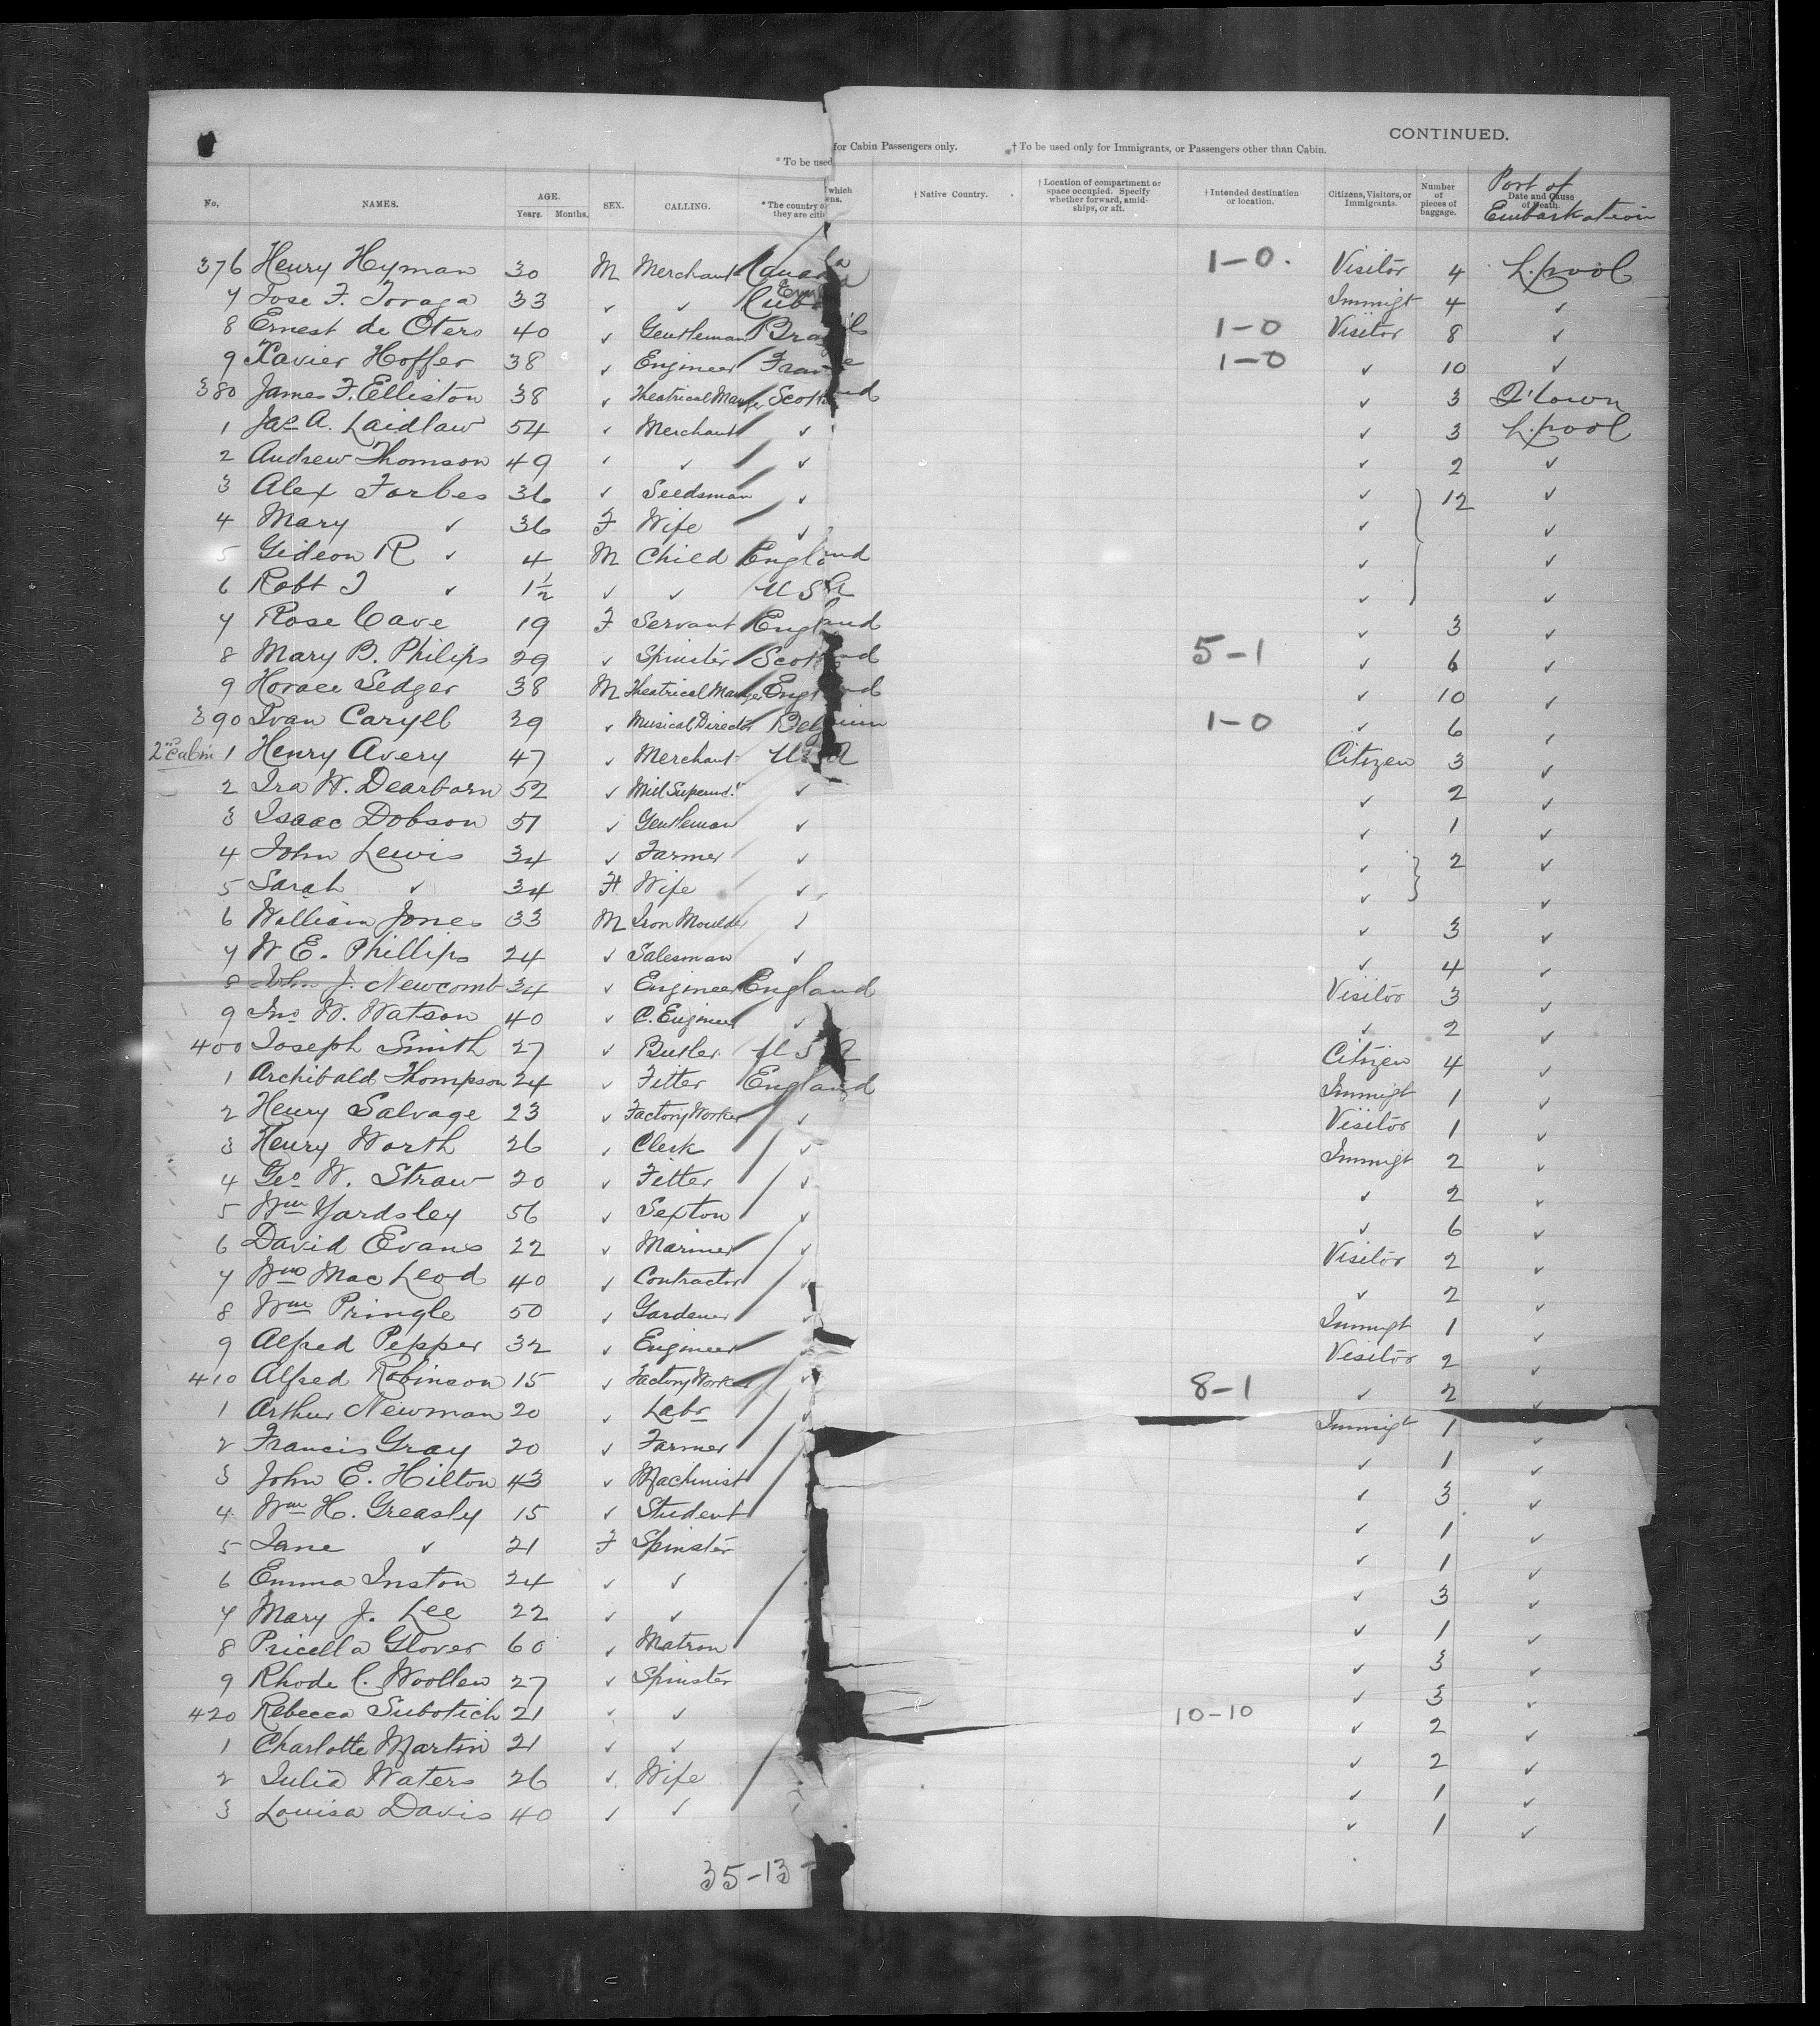 CONTINUED.
* To be used for Cabin Passengers only. † To be used only for Immigrants, or Passengers other than Cabin.
No. NAMES. AGE. Years. Months. SEX. CALLING. * The country of which they are citizens. † Native Country. † Location of compartment or space occupied. Specify whether forward, amidships, or aft. † Intended destination or location. Citizens, Visitors, or Immigrants. Number of pieces of baggage. Date and Cause of Death. Port of Embarkation
376 Henry Heyman 30 M Merchant Canada 1-0. Visitor 4 L.pool
7 Jose F. Toraga 33 ✓ ✓ Cuba Immigt 4 ✓
8 Ernest de Otero 40 ✓ Gentleman Brazil 1-0 Visitor 8 ✓
9 Xavier Hoffer 38 ✓ Engineer France 1-0 ✓ 10 ✓
380 James F. Elliston 38 ✓ Theatrical Manger Scotland ✓ 3 Q'town
1 Jas A. Laidlaw 54 ✓ Merchant ✓ ✓ 3 L.pool
2 Andrew Thomson 49 ✓ ✓ ✓ ✓ 2 ✓
3 Alex Forbes 36 ✓ Seedsman ✓ ✓ 12 ✓
4 Mary ✓ 36 F Wife ✓ ✓ ✓
5 Gideon R ✓ 4 M Child England ✓ ✓
6 Robt T ✓ 1½ ✓ ✓ USA ✓ ✓
7 Rose Cave 19 F Servant England ✓ 3 ✓
8 Mary B. Philips 29 ✓ Spinster Scotland 5-1 ✓ 6 ✓
9 Horace Sedger 38 M Theatrical Manger England ✓ 10 ✓
390 Ivan Caryll 29 ✓ Musical Director Belgium 1-0 ✓ 6 ✓
2nd Cabin 1 Henry Avery 47 ✓ Merchant USA Citizen 3 ✓
2 Ira W. Dearborn 52 ✓ Mill Superind.t ✓ ✓ 2 ✓
3 Isaac Dobson 51 ✓ Gentleman ✓ ✓ 1 ✓
4 John Lewis 34 ✓ Farmer ✓ ✓ 2 ✓
5 Sarah ✓ 34 F Wife ✓ ✓ ✓
6 William Jones 33 M Iron Moulder ✓ ✓ 3 ✓
7 W E. Phillips 24 ✓ Salesman ✓ ✓ 4 ✓
8 John J. Newcomb 34 ✓ Engineer England Visitor 3 ✓
9 Jno W. Watson 40 ✓ C. Engineer ✓ ✓ 2 ✓
400 Joseph Smith 27 ✓ Butler USA Citizen 4 ✓
1 Archibald Thompson 24 ✓ Fitter England Immigt 1 ✓
2 Henry Salvage 23 ✓ Factory Worker ✓ Visitor 1 ✓
3 Henry Worth 26 ✓ Clerk ✓ Immigt 2 ✓
4 Geo W. Straw 20 ✓ Fitter ✓ ✓ 2 ✓
5 Wm Yardsley 56 ✓ Sexton ✓ ✓ 6 ✓
6 David Evans 22 ✓ Mariner ✓ Visitor 2 ✓
7 Wm MacLeod 40 ✓ Contractor ✓ ✓ 2 ✓
8 Wm Pringle 50 ✓ Gardener ✓ Immigt 1 ✓
9 Alfred Pepper 32 ✓ Engineer ✓ Visitor 2 ✓
410 Alfred Robinson 15 ✓ Factory Worker ✓ 8-1 ✓ 2 ✓
1 Arthur Newman 20 ✓ Labr ✓ Immigt 1 ✓
2 Francis Gray 20 ✓ Farmer ✓ ✓ 1 ✓
3 John E. Hilton 43 ✓ Machinist ✓ 3 ✓
4 Wm H. Greasly 15 ✓ Student ✓ 1 ✓
5 Jane ✓ 21 F Spinster ✓ 1 ✓
6 Emma Inston 24 ✓ ✓ ✓ 3 ✓
7 Mary J. Lee 22 ✓ ✓ ✓ 1 ✓
8 Pricella Glover 60 ✓ Matron ✓ 3 ✓
9 Rhode C. Woollen 27 ✓ Spinster ✓ 3 ✓
420 Rebecca Subotich 21 ✓ ✓ 10-10 ✓ 2 ✓
1 Charlotte Martin 21 ✓ ✓ ✓ 2 ✓
2 Julia Waters 26 ✓ Wife ✓ 1 ✓
3 Louisa Davis 40 ✓ ✓ ✓ 1 ✓
35-13